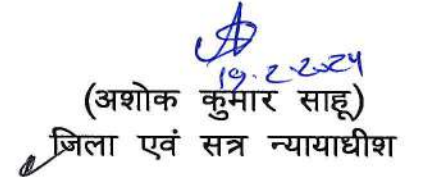 19.2.2024
(अशोक कुमार साहू)
जिला एवं सत्र न्यायाधीश